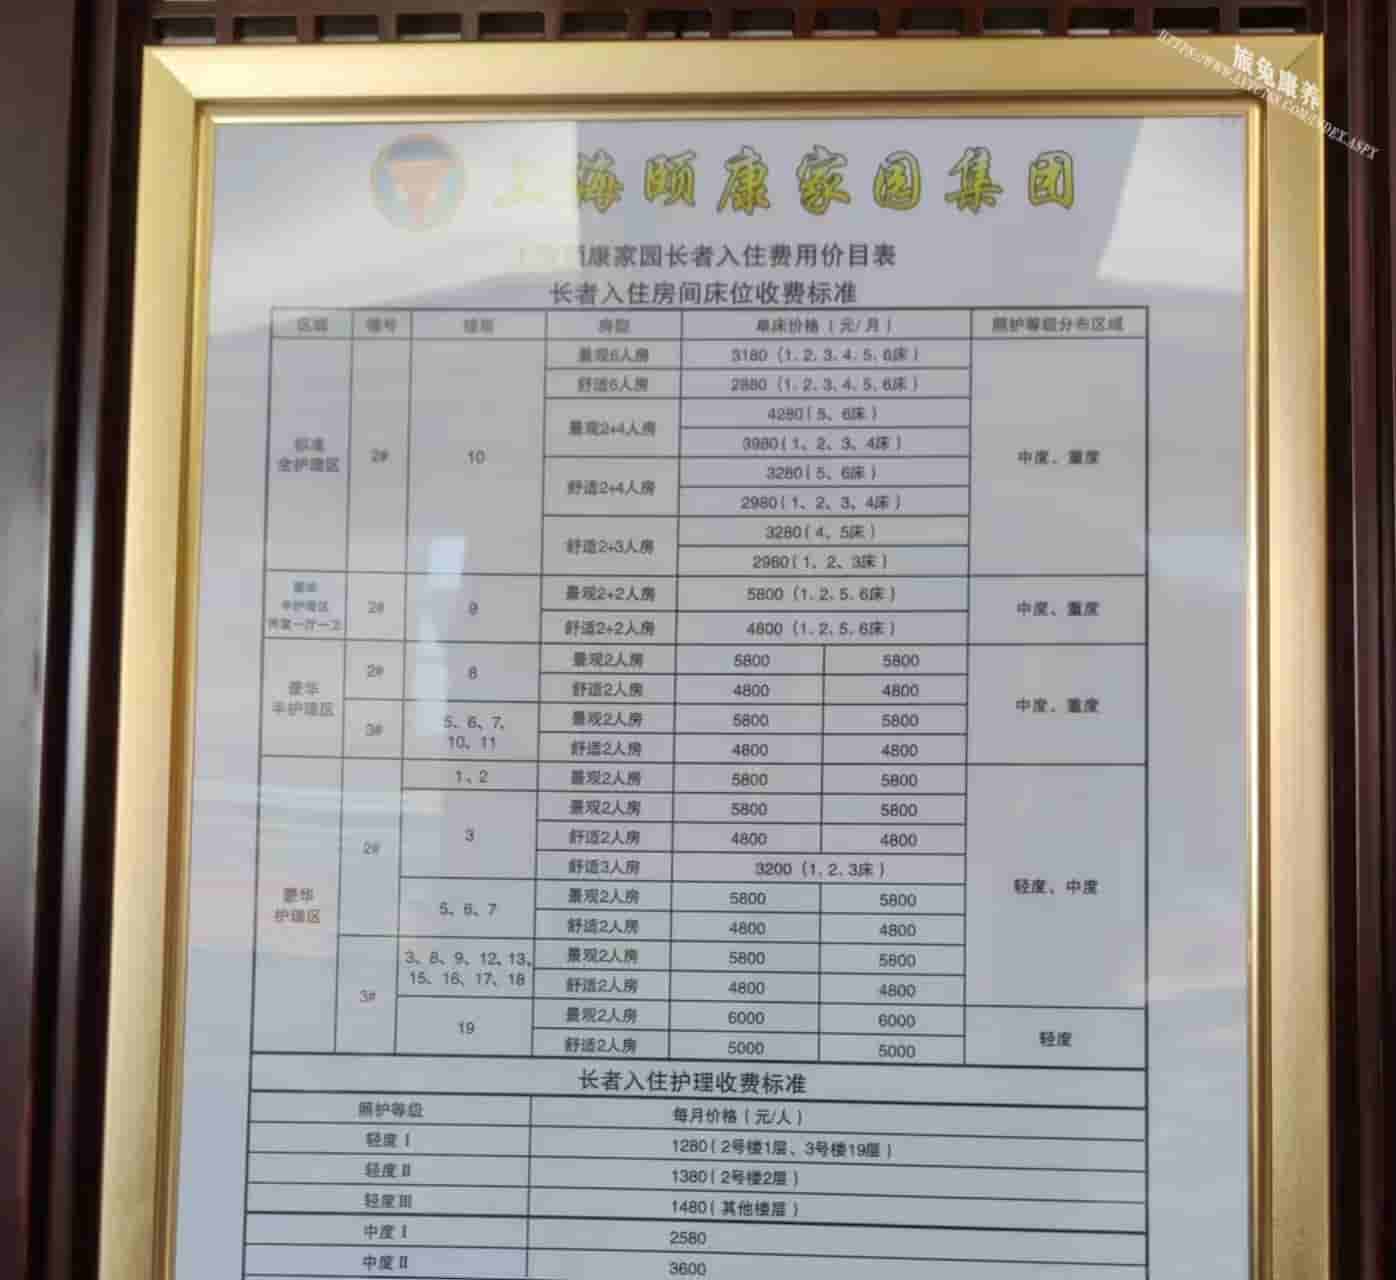 旅兔康养
上海颐康家园集团
康家园长者入住费用价目表
长者入住房间床位收费标准
区域 楼号 楼层 房型 单床价格（元/月） 照护等级分布区域
标准全护理区 2# 10 景观6人房 3180（1.2.3.4.5.6床） 中度、重度
舒适6人房 2880（1.2.3.4.5.6床）
景观2+4人房 4280（5、6床）
3980（1、2、3、4床）
舒适2+4人房 3280（5、6床）
2980（1、2、3、4床）
舒适2+3人房 3280（4、5床）
2980（1、2、3床）
半护理区 2# 9 景观2+2人房 5800（1.2.5.6床） 中度、重度
舒适2+2人房 4800（1.2.5.6床）
豪华半护理区 2# 8 景观2人房 5800 5800 中度、重度
舒适2人房 4800 4800
3# 5、6、7、10、11 景观2人房 5800 5800
舒适2人房 4800 4800
豪华护理区 2# 1、2 景观2人房 5800 5800 轻度、中度
3 景观2人房 5800 5800
舒适2人房 4800 4800
舒适3人房 3200（1.2.3床）
5、6、7 景观2人房 5800 5800
舒适2人房 4800 4800
3# 3、8、9、12、13、15、16、17、18 景观2人房 5800 5800
舒适2人房 4800 4800
19 景观2人房 6000 6000 轻度
舒适2人房 5000 5000
长者入住护理收费标准
照护等级 每月价格（元/人）
轻度Ⅰ 1280（2号楼1层、3号楼19层）
轻度Ⅱ 1380（2号楼2层）
轻度Ⅲ 1480（其他楼层）
中度Ⅰ 2580
中度Ⅱ 3600